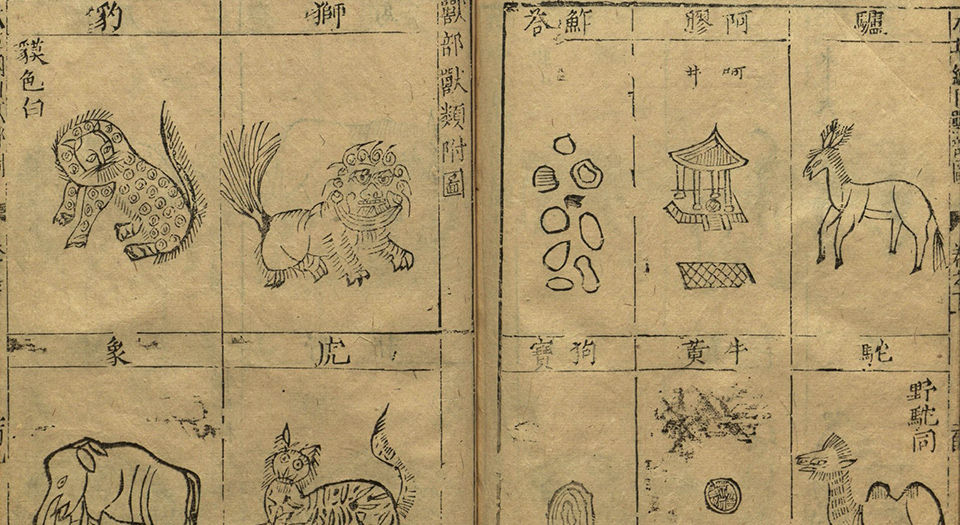 驢
阿膠
阿井
鮓荅
駝
野駝同
牛黃
狗寶
獸部獸類附圖
獅
豹
貘色白
虎
象